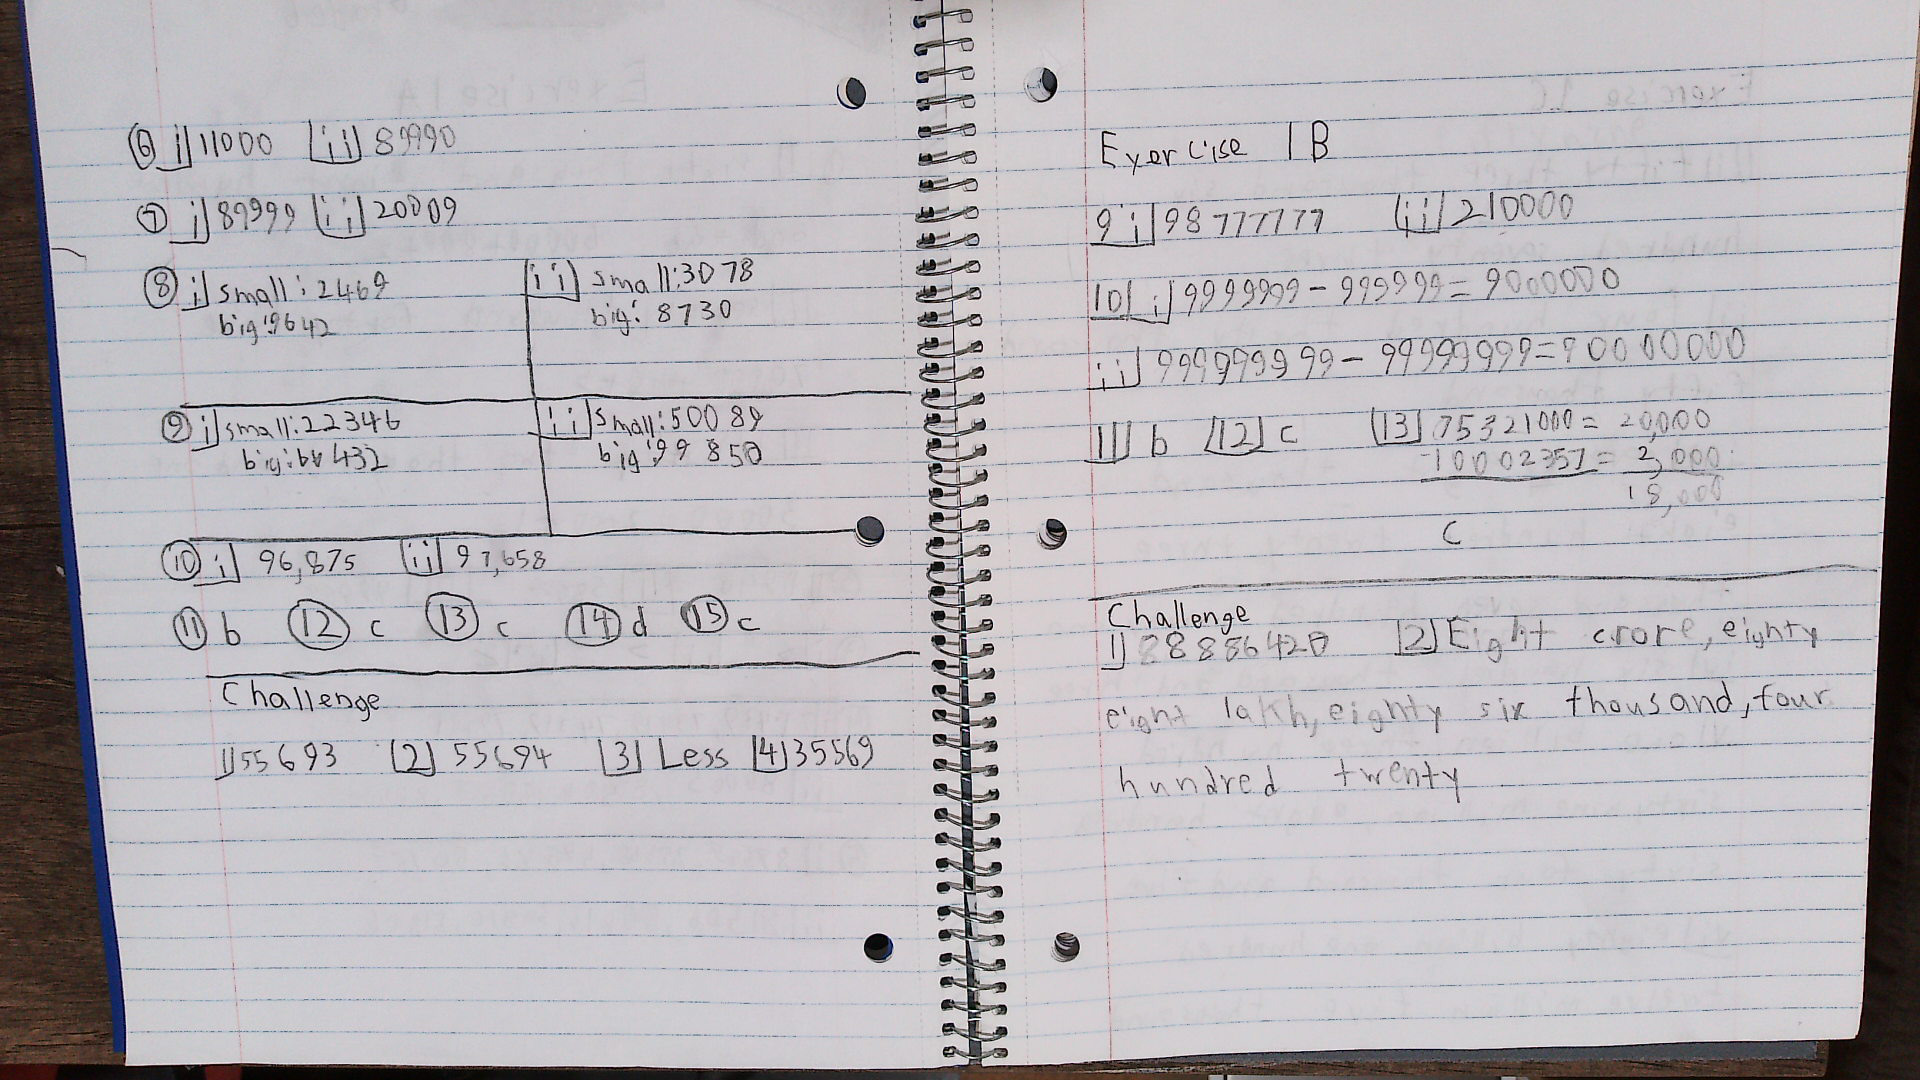 6 i] 11000 [ii] 89990
7 i] 89999 [ii] 20009
8 i] small: 2469
big: 9642
[ii] small: 3078
big: 8730
9 i] small: 22346
big: 66432
[ii] small: 50089
big: 99850
10 i] 96,875 [ii] 97,658
11 b 12 c 13 c 14 d 15 c
Challenge
1] 55693 [2] 55694 [3] Less [4] 35569
Exercise 1B
9 i] 98777777 [ii] 210000
10] i] 9999999 - 999999 = 9000000
ii] 999999999 - 99999999 = 900000000
11] b [12] c [13] 75321000 = 20,000
10002357 = 2,000
18,000
C
Challenge
1] 88886420 [2] Eight crore, eighty
eight lakh, eighty six thousand, four
hundred twenty